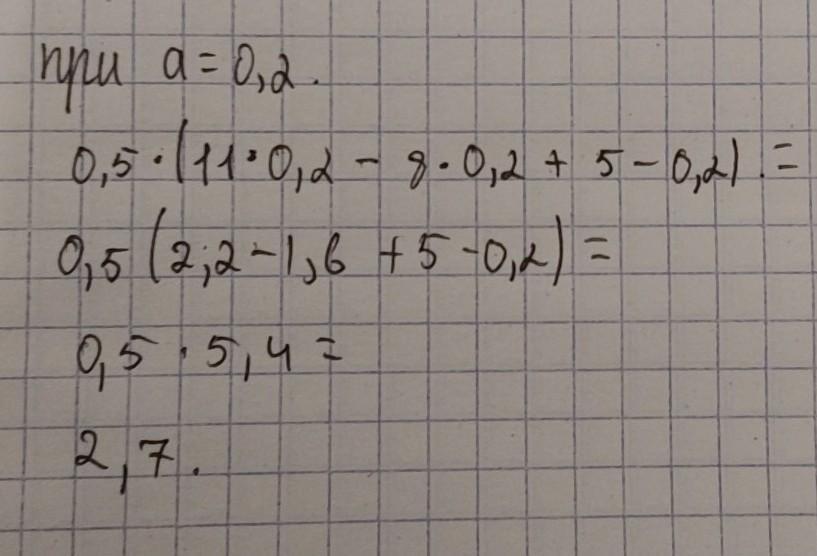 при a = 0,2.
0,5 · (11 · 0,2 - 8 · 0,2 + 5 - 0,2) =
0,5 (2,2 - 1,6 + 5 - 0,2) =
0,5 · 5,4 =
2,7.